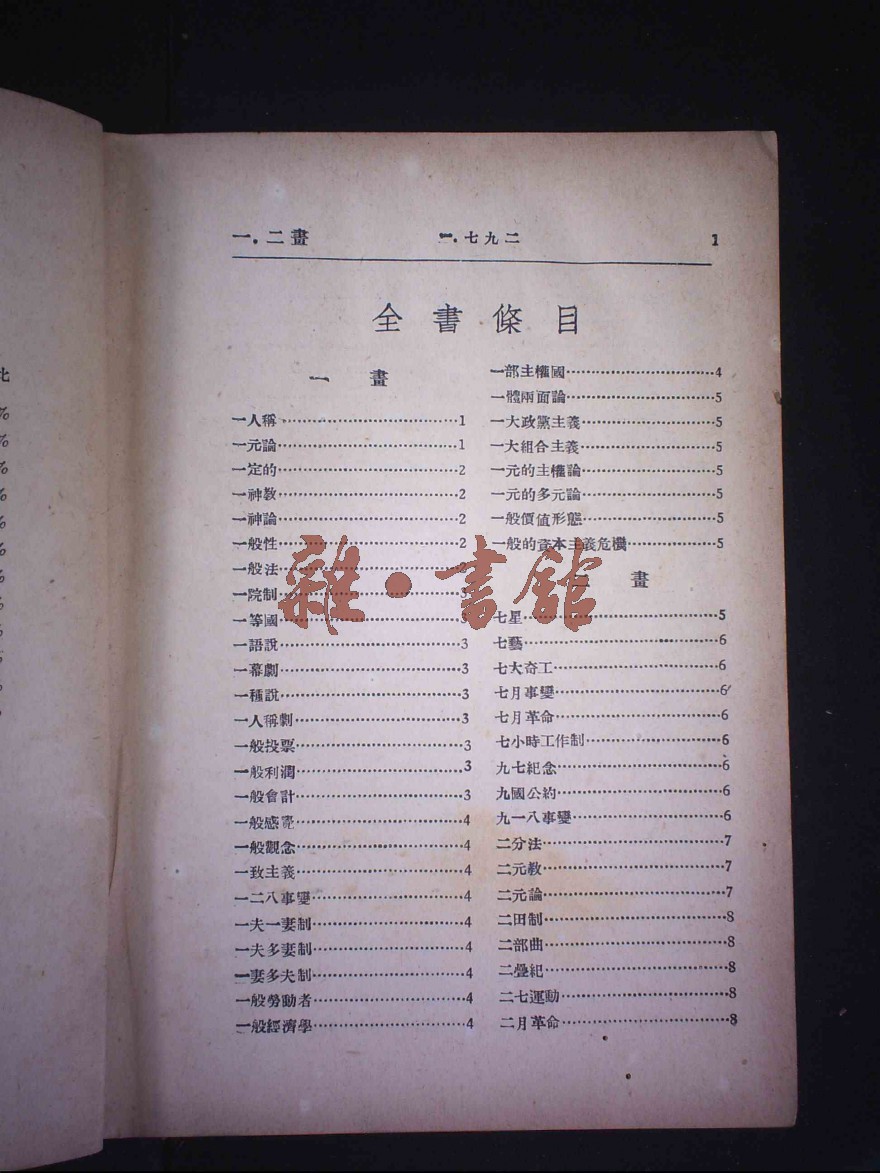 一.二畫 一.七九二 1
全書條目
一 畫
一人稱…1
一元論…1
一定的…2
一神教…2
一神論…2
一般性…2
一般法
一院制…3
一等國…3
一語說…3
一幕劇…3
一種說…3
一人稱劇…3
一般投票…3
一般利潤…3
一般會計…3
一般感覺…4
一般觀念…4
一致主義…4
一二八事變…4
一夫一妻制…4
一夫多妻制…4
一妻多夫制…4
一般勞動者…4
一般經濟學…4
一部主權國…4
一體兩面論…5
一大政黨主義…5
一大組合主義…5
一元的主權論…5
一元的多元論…5
一般價值形態…5
一般的資本主義危機…5
二 畫
七星…5
七藝…6
七大奇工…6
七月事變…6
七月革命…6
七小時工作制…6
九七紀念…6
九國公約…6
九一八事變…6
二分法…7
二元教…7
二元論…7
二田制…8
二部曲…8
二疊紀…8
二七運動…8
二月革命…8
雜·書館
比
%
%
%
%
%
%
%
%